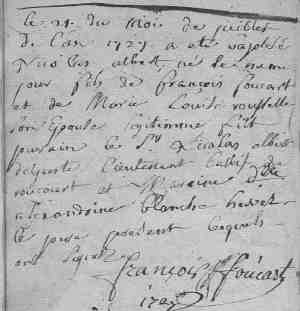 le 21 du mois de juillet
de l'an 1727 a eté baptisé
nicolas albert, né le meme
jour fils de françois foucart
et de Marie Louise rousselle
son Epouse legitimme fut
parain le Sr nicolas albert
lieutenant
et Maraine
alexandrine blanche
le pere present lequels
ont signet
françois ffoucart
1727